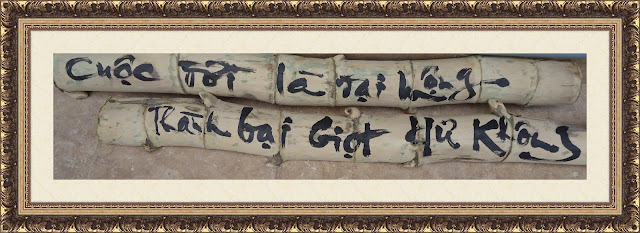 Cuộc Đời là Đại Mộng
Thành bại Giọt Hư Không